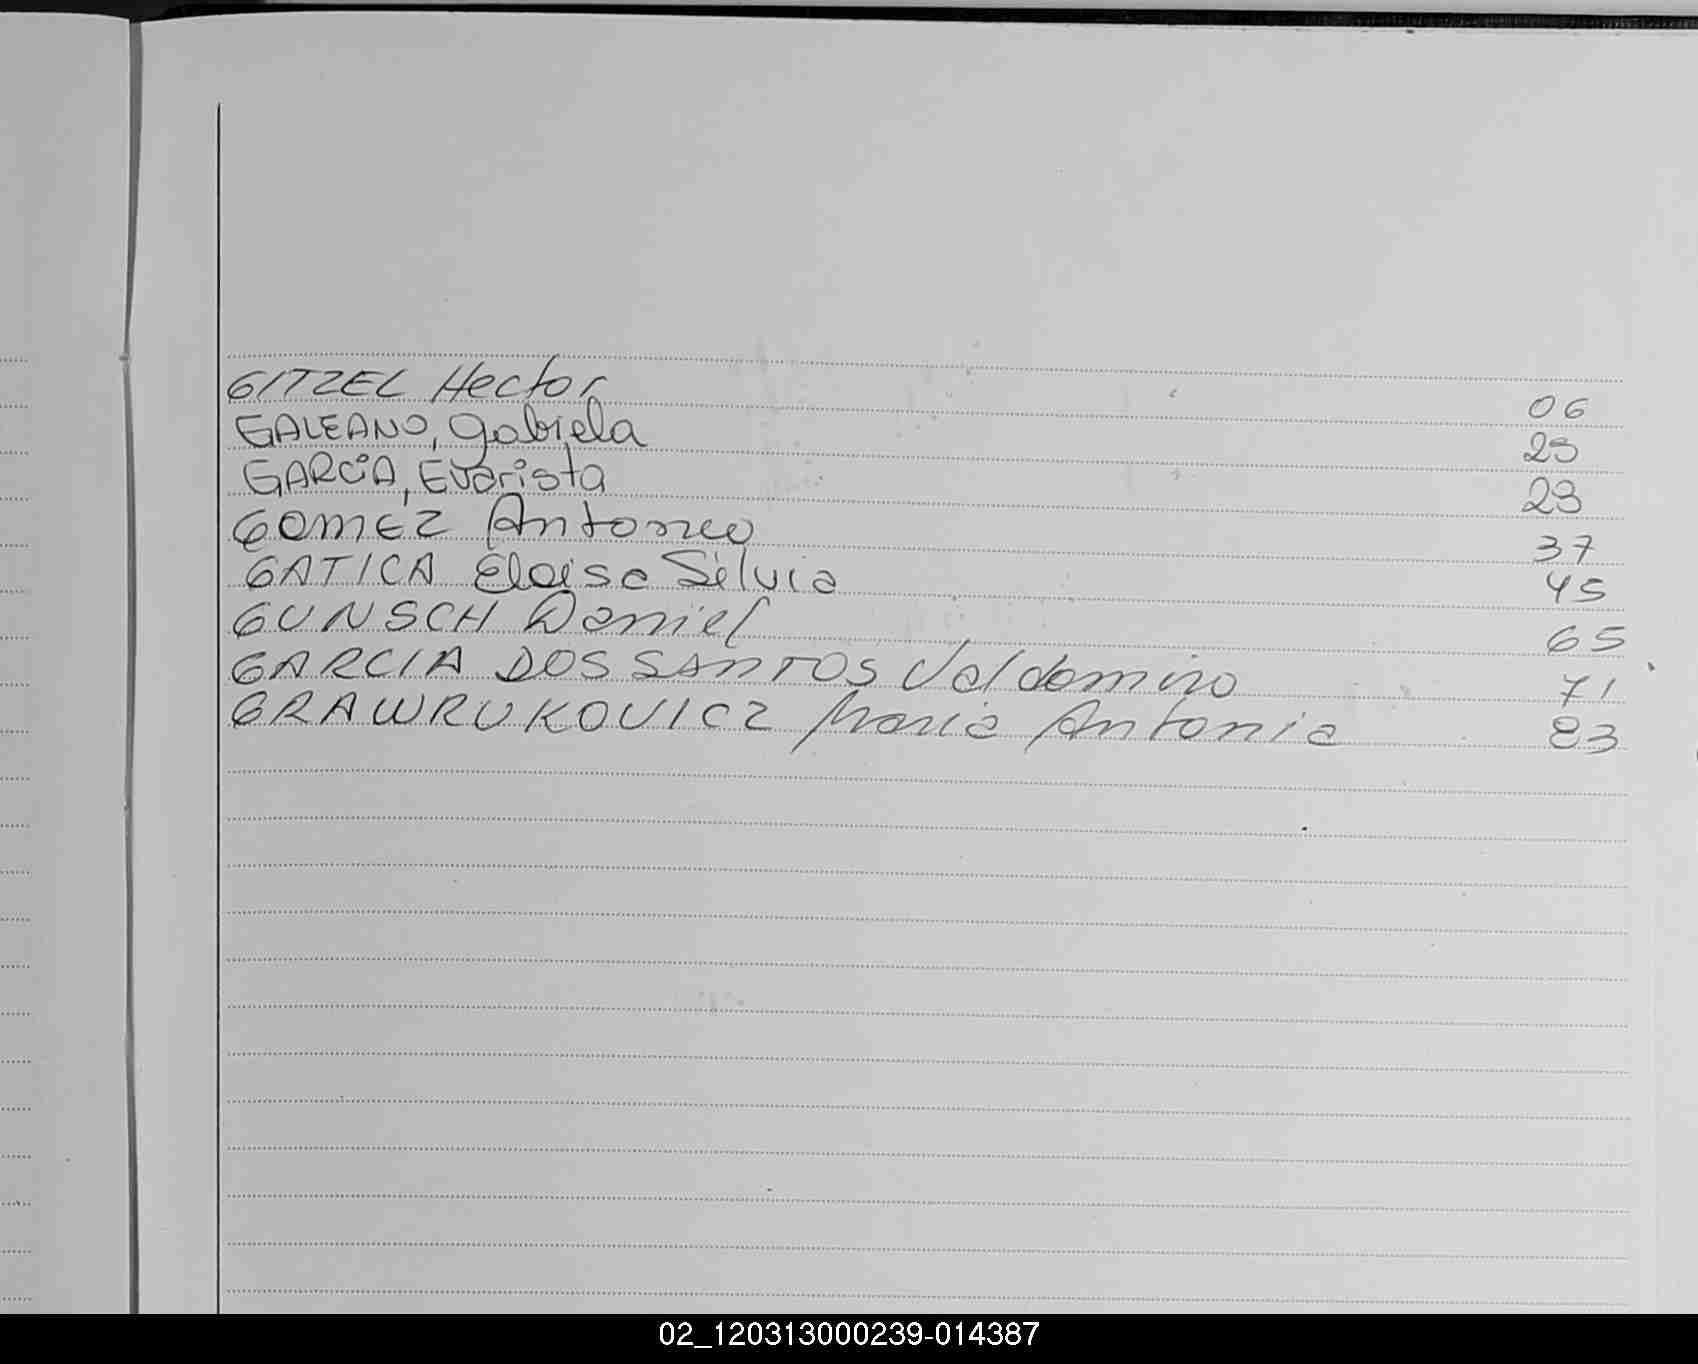 GITZEL Hector 06
GALEANO, Gabiela 25
GARCíA, Evarista 23
GOMEZ Antonio 37
GATICA Eloisa Silvia 45
GUNSCH Daniel 65
GARCIA DOS SANTOS Valdomiro 71
GRAWRUKOVICZ Maria Antonia 83
02_120313000239-014387